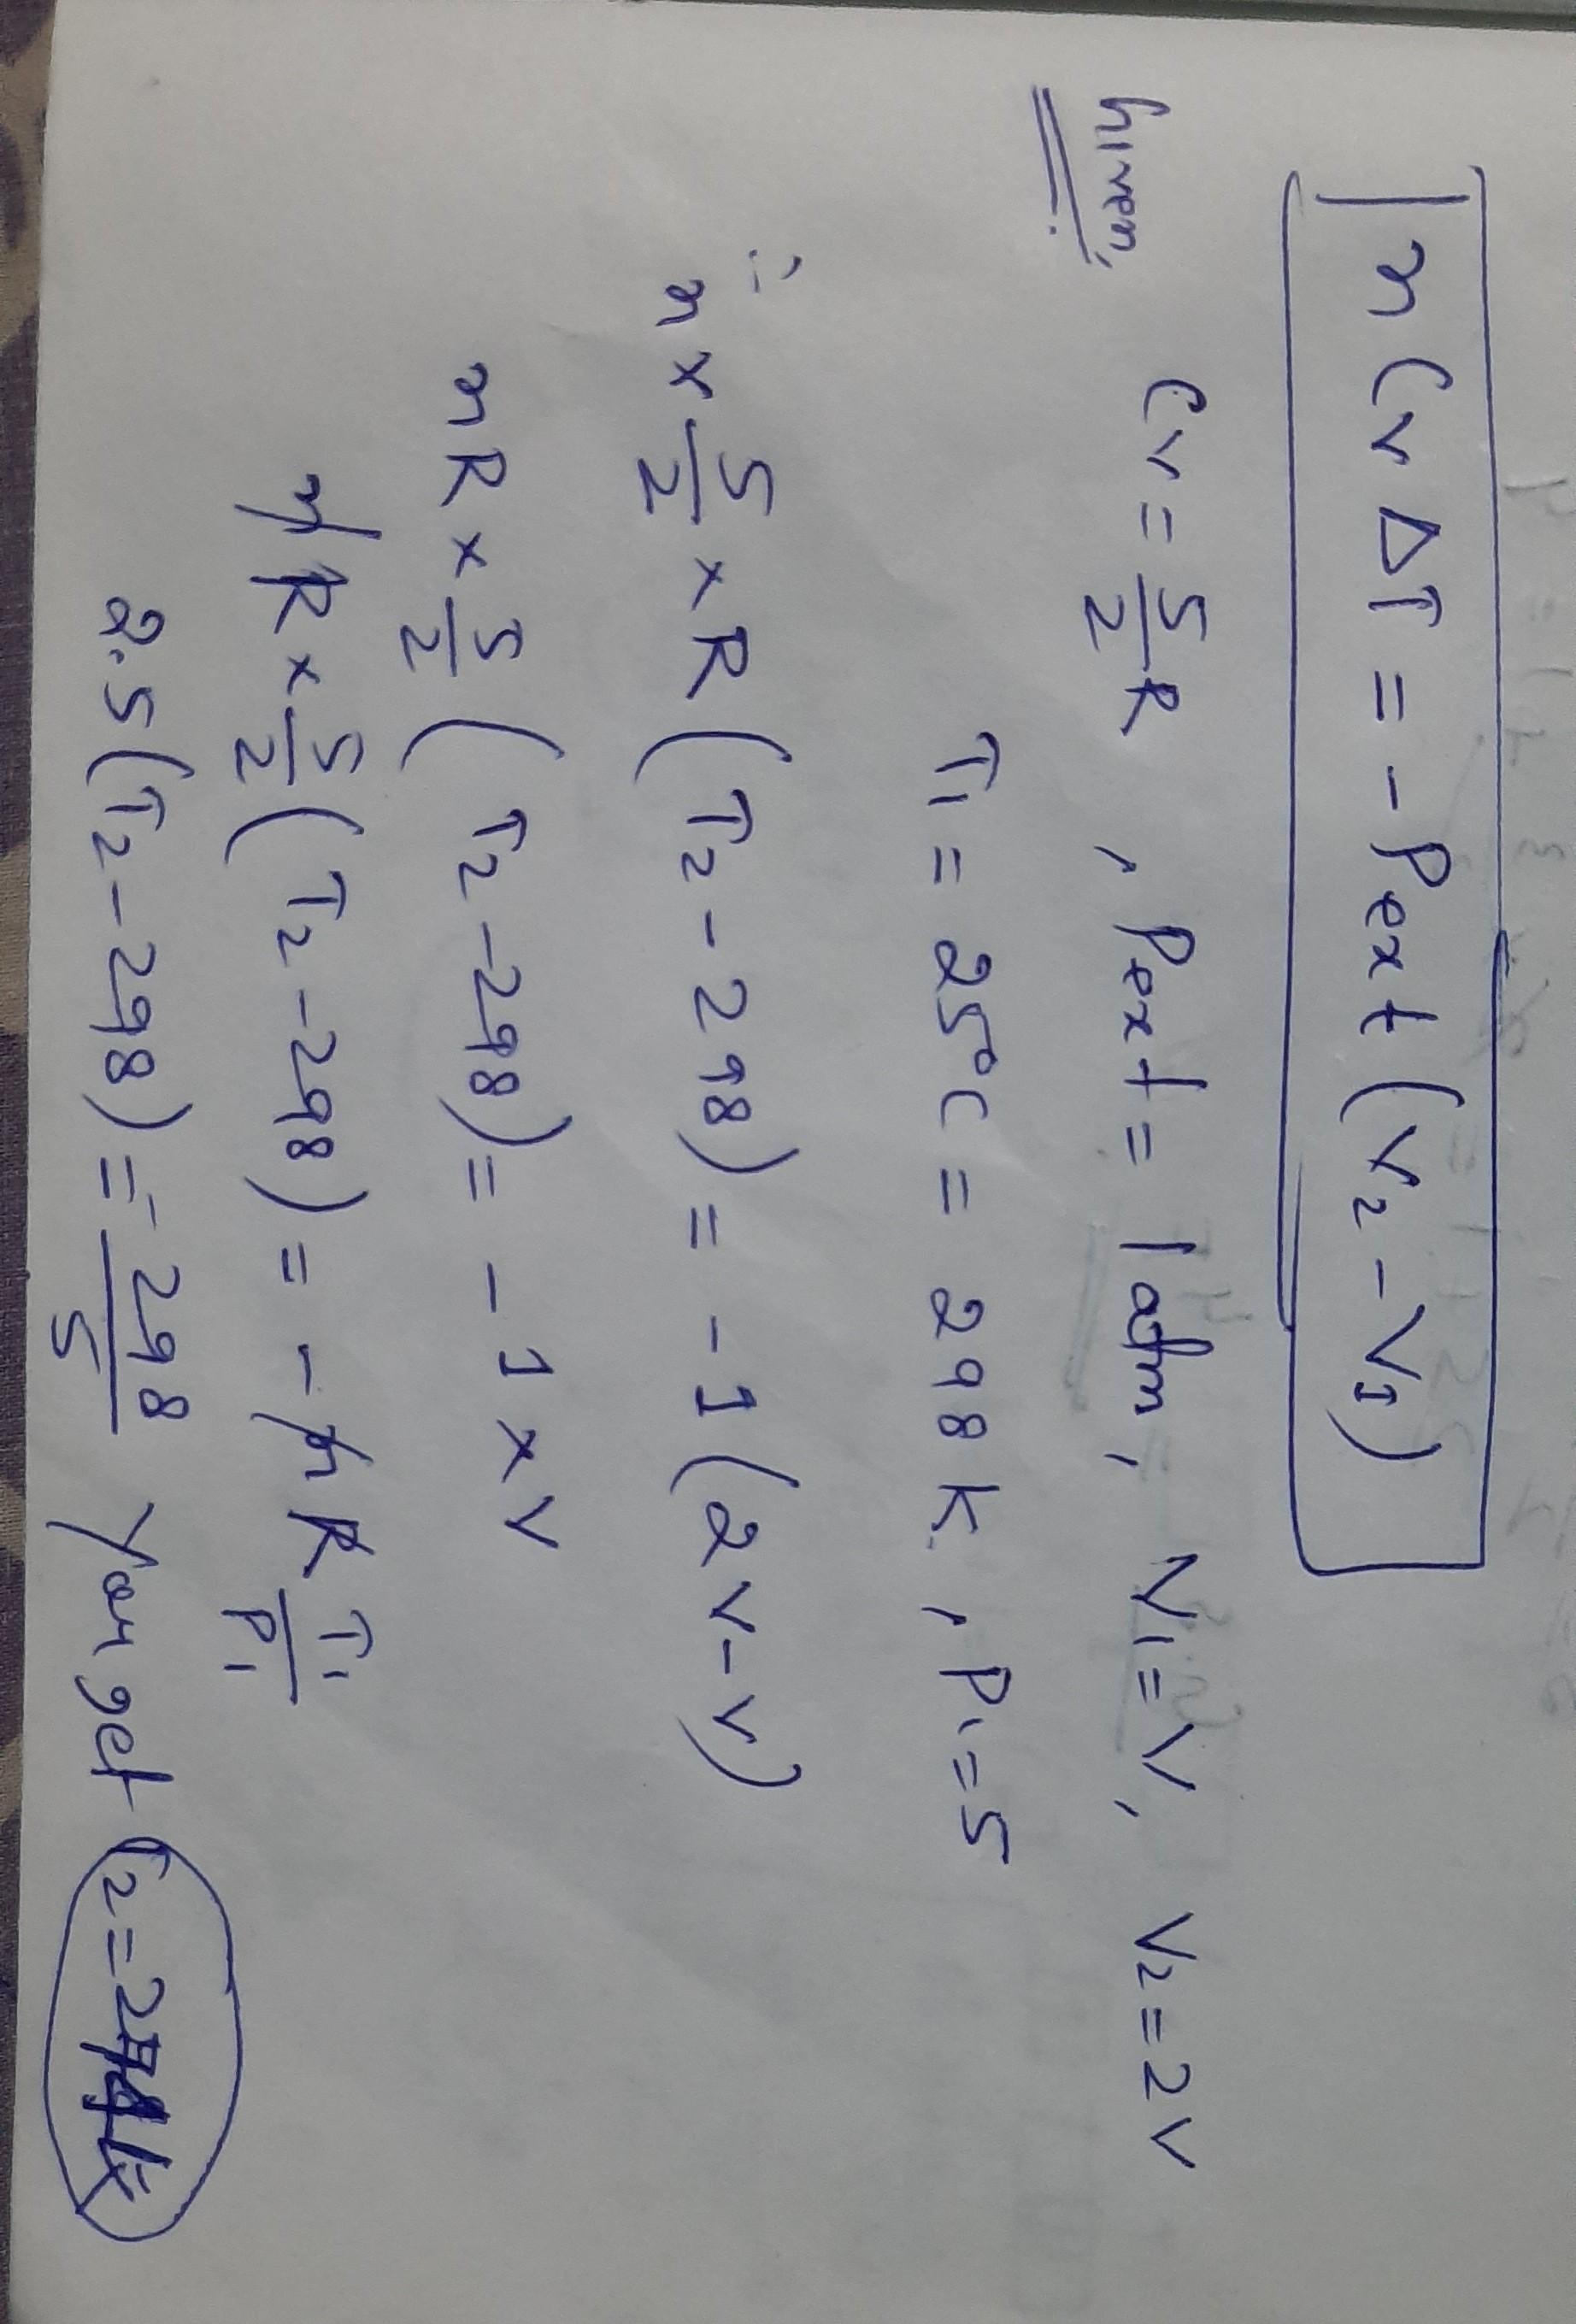 n Cv ΔT = - Pext (V2 - V1)
Given, Cv = 5/2 R , Pext = 1 atm, V1 = V, V2 = 2V
T1 = 25°C = 298 K, P1 = 5
∴ n x 5/2 x R (T2 - 298) = -1 (2V - V)
nR x 5/2 (T2 - 298) = - 1 x V
nR x 5/2 (T2 - 298) = - nR T1/P1
2.5 (T2 - 298) = - 298/5 You get T2 =